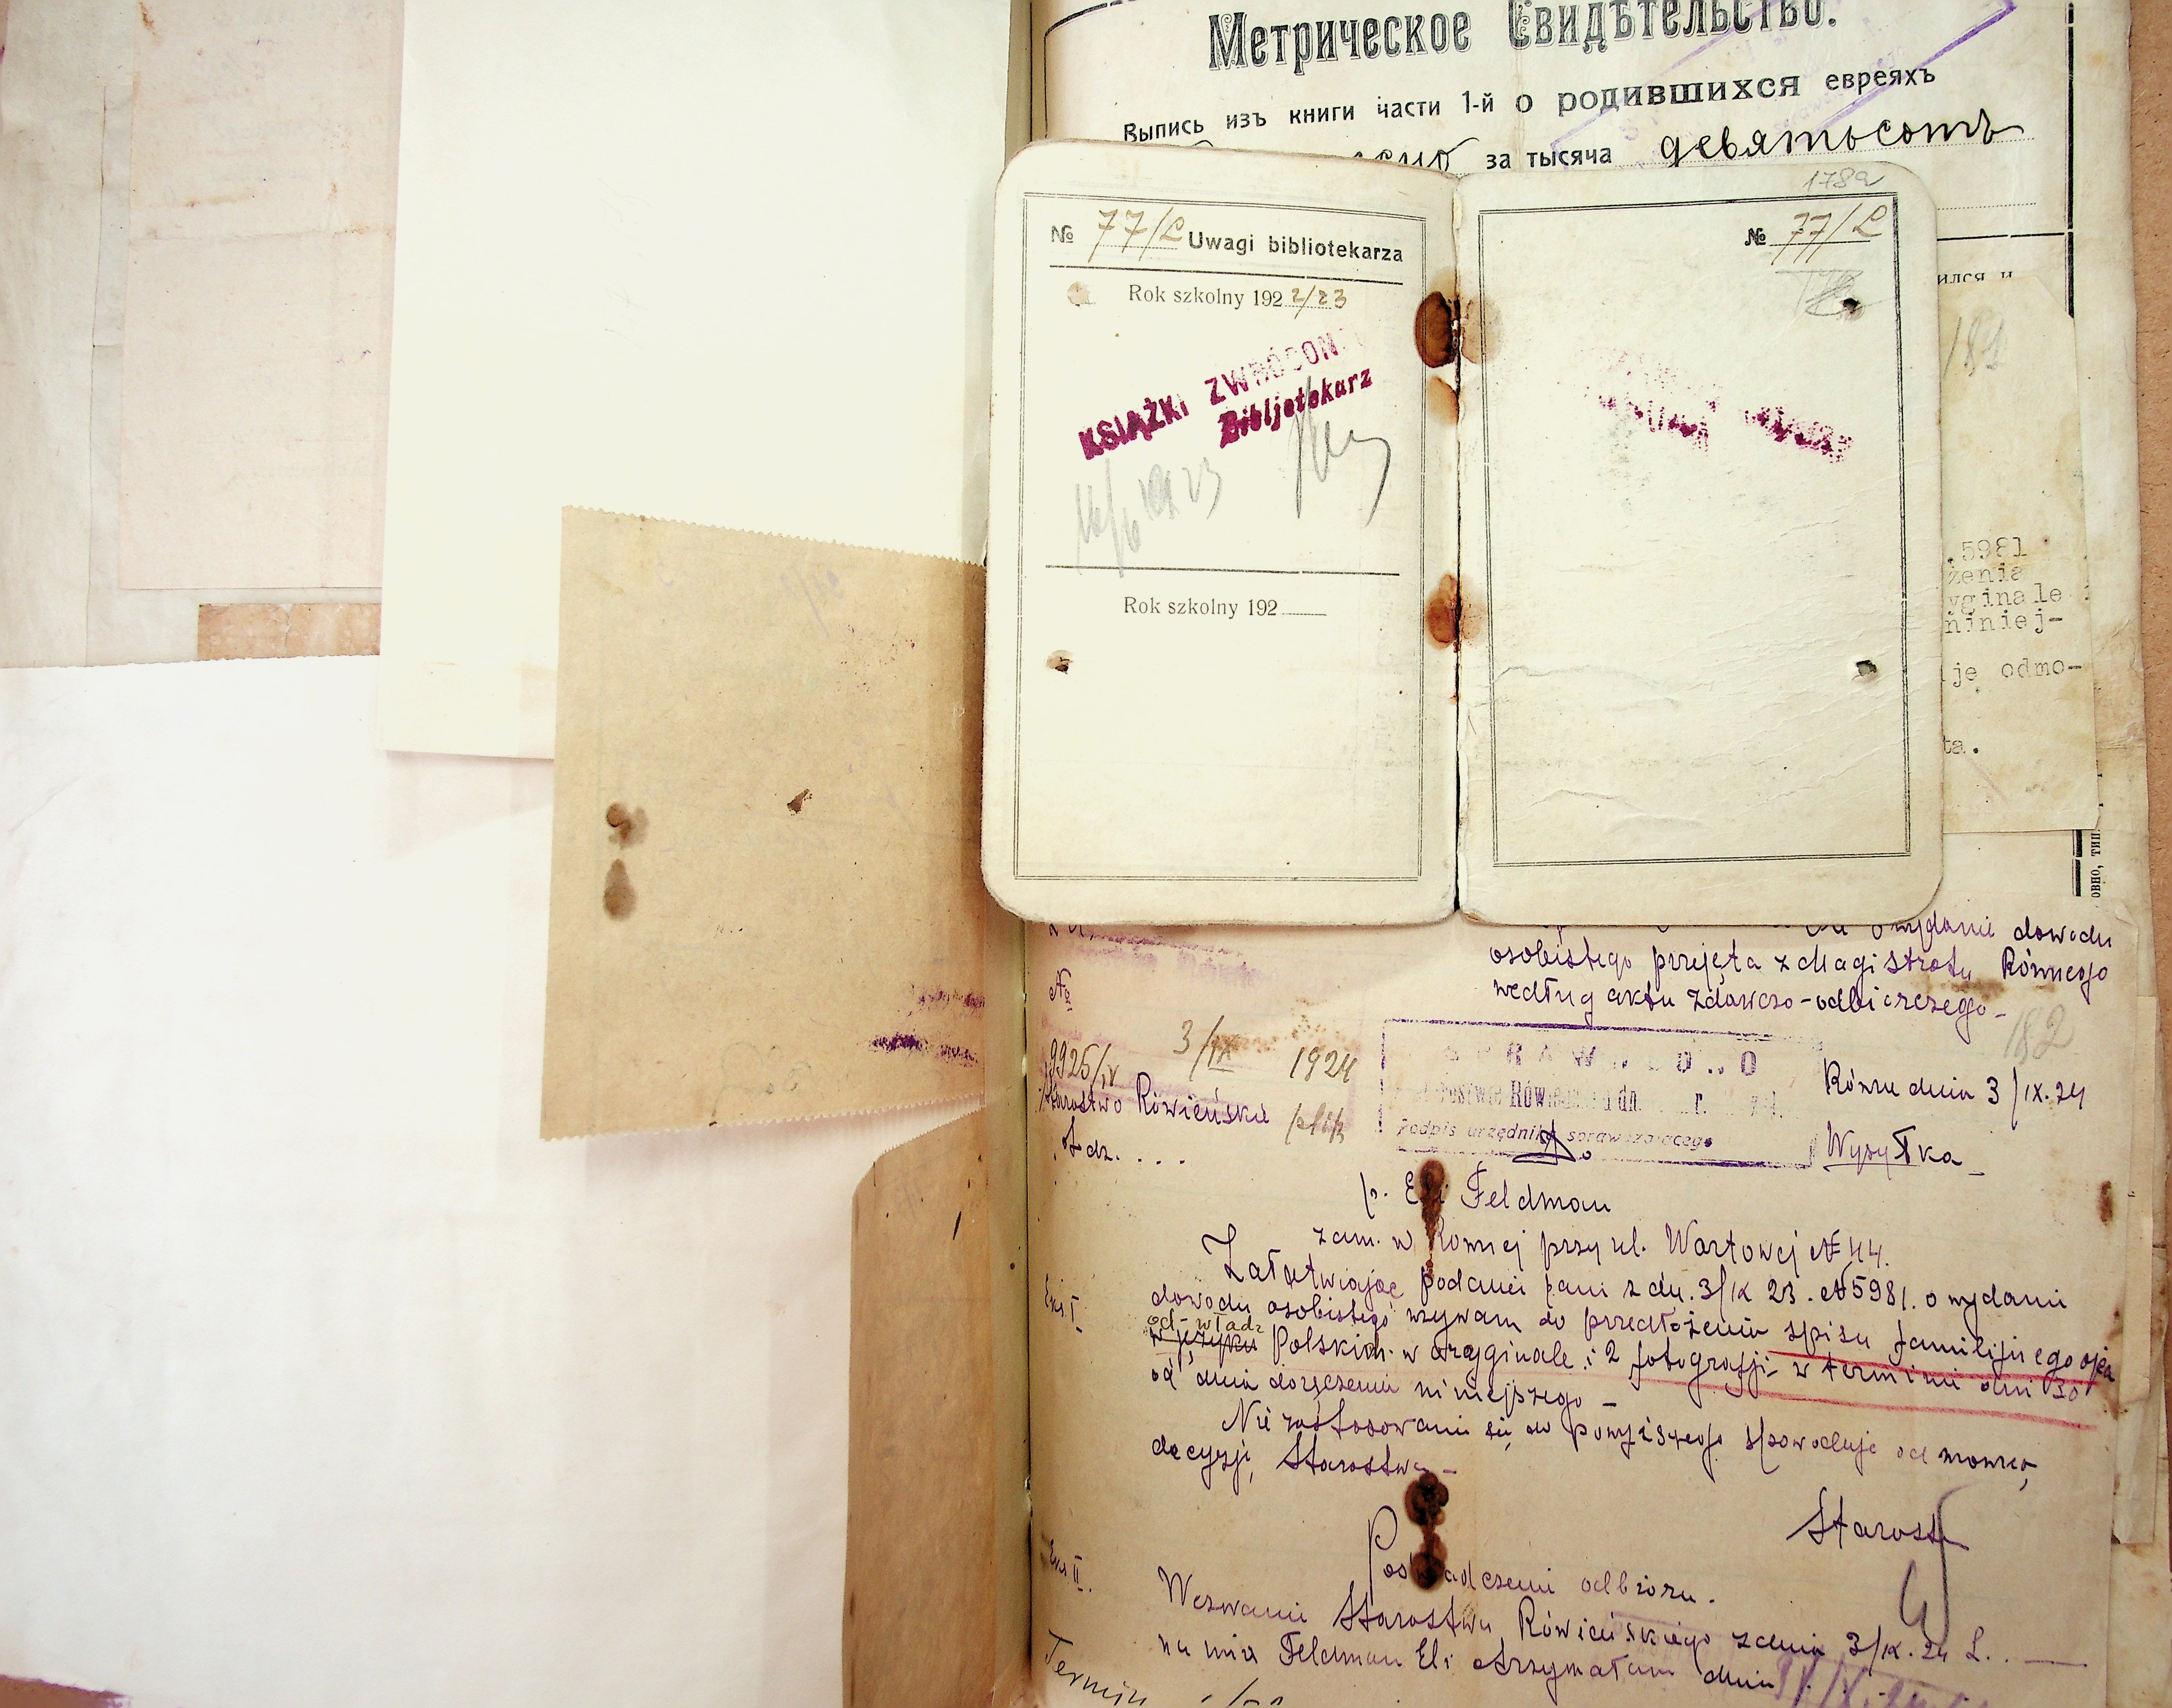 Метрическое Свидѣтельство.
Выпись изъ книги части 1-й о родившихся евреяхъ
за тысяча девятьсотъ
1789
№ 77/L Uwagi bibliotekarza
Rok szkolny 192 2/23
KSIĄŻKI ZWRÓCONO
Bibljotekarz
Rok szkolny 192
№ 77/L
ился и
5981
żenia
yginale i
niniej-
je odmo-
ta.
овно, тип.
o wydanie dowodu
osobistego przejęta z Magistratu Równego
według aktu zdawczo-odbiorczego-
182
№
9925/IV 3/IX 1924
Starostwo Rówieńskie
L dz. . . .
Podpis urzędnika sprawdzającego
Równe dnia 3/IX.24
Wysyłka
p. Eli Feldman
zam. w Równej przy ul. Wartowej № 44.
Eks. I
Załatwiając podanie pani z dn. 3/IX 23. № 5981. o wydanie
dowodu osobistego wzywam do przedłożenia spisu familijnego ojca
od-władz
w języku Polskim w oryginale i 2 fotografji w terminie dni 30
od dnia doręczenia niniejszego -
Nie zastosowanie się do powyższego spowoduje odmowną
decyzję Starostwa-
Starosta
Eks II.
Poświadczenie odbioru.
Wezwanie Starostwa Rówieńskiego z dnia 3/IX.24 L..
na imię Feldman Eli otrzymałam dnia
Termin